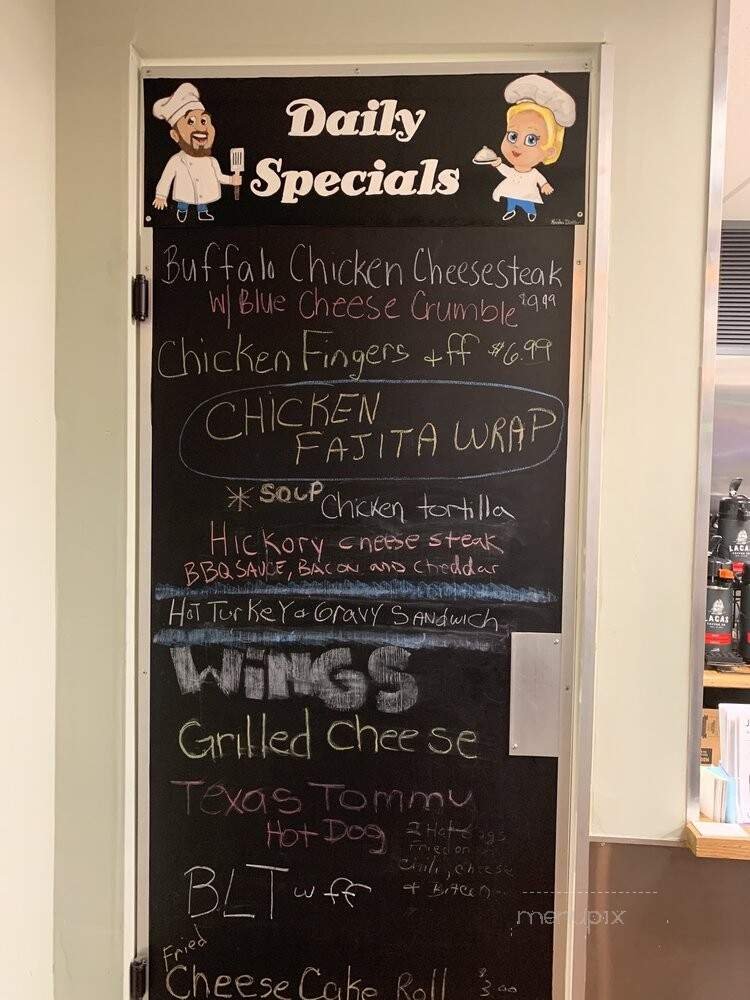 Daily
Specials
Buffalo Chicken Cheesesteak
W/ Blue Cheese Crumble $9.99
Chicken Fingers + ff $6.99
CHICKEN
FAJITA WRAP
* SOUP Chicken tortilla
Hickory cheese steak
BBQ SAUCE, BACON AND Cheddar
HOT TurKey & Gravy SANdwich
WiNGS
Grilled Cheese
Texas Tommy
Hot Dog
2 Hot
Fried on
Chili, cheese
+
BLT w ff
Fried
Cheese Cake Roll $3.00
LACAS
LACAS
menupix